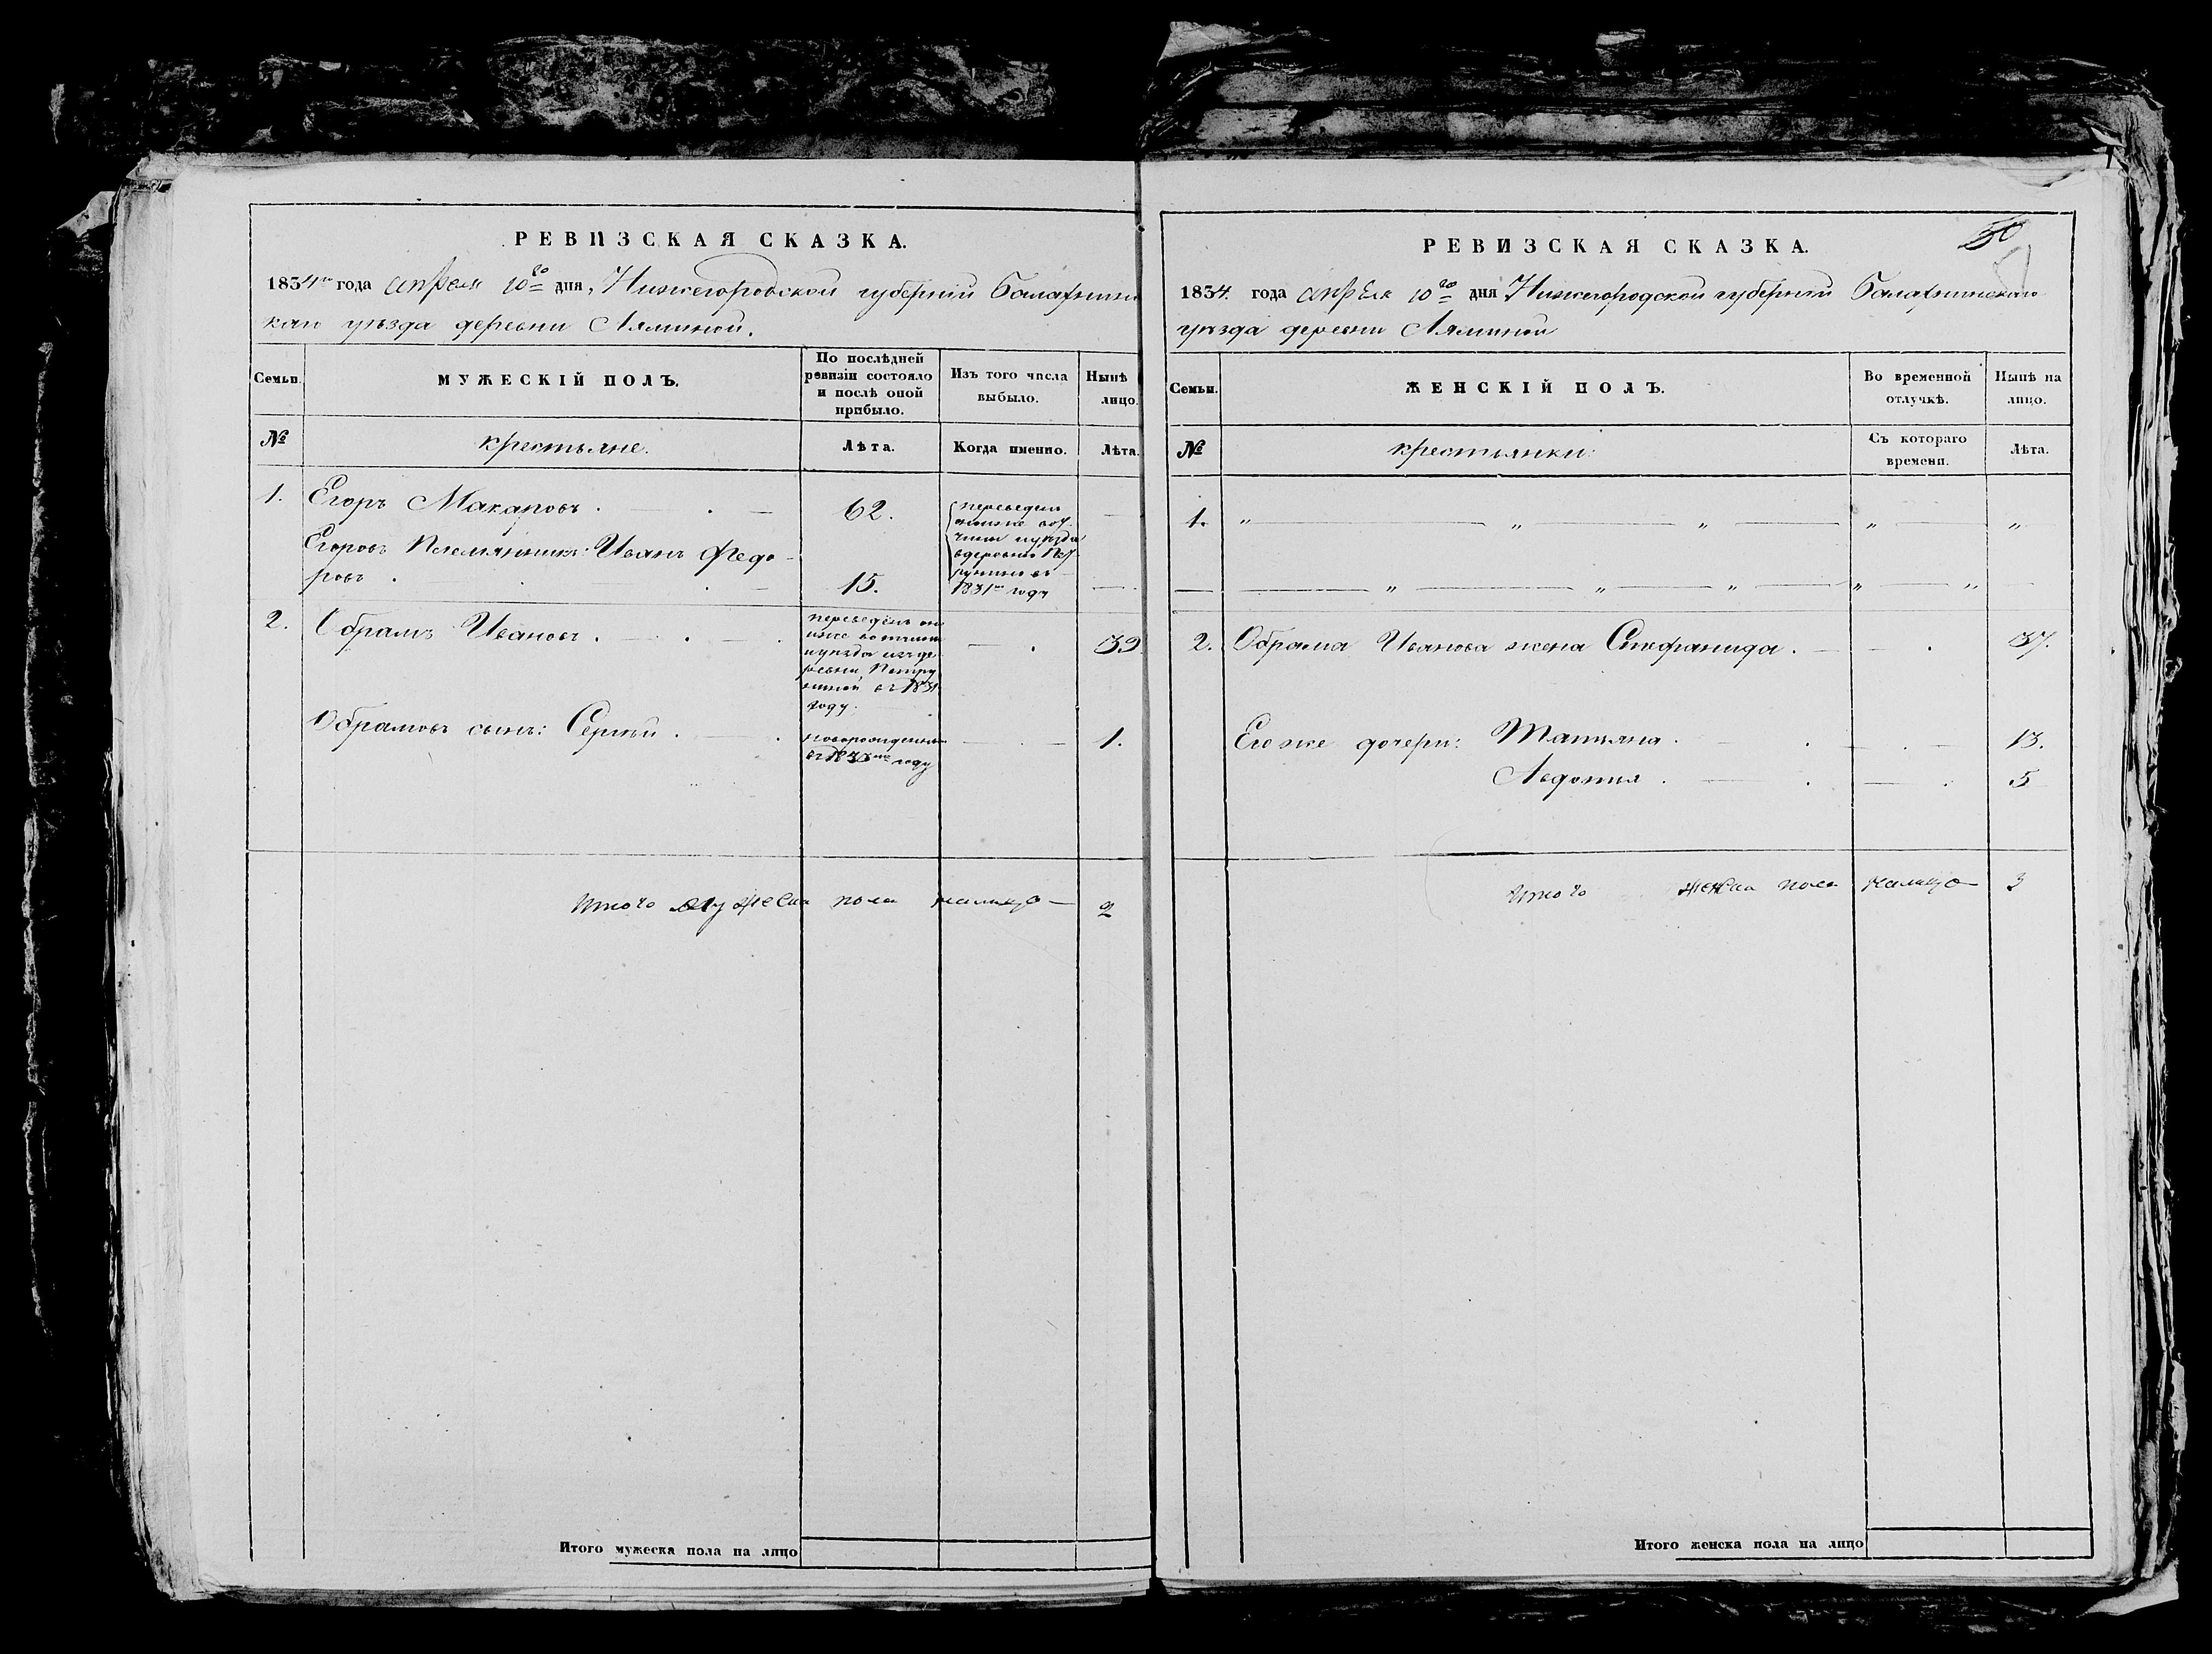 РЕВИЗСКАЯ СКАЗКА.
1834го года апреля 10го дня, Нижегородской губернiи Балахнинс
каго уѣзда деревни Ляминой.
Семьи.
МУЖЕСКIЙ ПОЛЪ.
По послѣдней ревизiи состояло и послѣ оной прибыло.
Изъ того числа выбыло.
Нынѣ лицо.
№
крестьяне.
Лѣта.
Когда именно.
Лѣта.
1. Егоръ Макаровъ . 62. —
переведен
уѣзда
в деревню
1831го году
Егоровъ племянникъ: Иванъ Федо-
ровъ . 15. —
2. Обрамъ Ивановъ . 39
переведенъ
вотчины
уѣзда изъ де
ревни Петру
ниной въ 1831
году.
Обрамовъ сынъ: Сергѣй . 1.
новорожденъ
въ 1833ме году
Итого мужеска пола налицо — 2
Итого мужеска пола на лицо
50
РЕВИЗСКАЯ СКАЗКА.
1834. года апреля 10го дня Нижегородской губернiи Балахнинскаго
уѣзда деревни Ляминой
Семьи.
ЖЕНСКIЙ ПОЛЪ.
Во временной отлучкѣ.
Нынѣ на лицо.
№
крестьянки:
Съ котораго времени.
Лѣта.
1. „ — „ — „ — „ „
— — „ — „ — „ — „ — „
2. Обрама Иванова жена Стефанида . 37.
Его же дочери: Татьяна . 13.
Авдотья . 5
Итого женска пола налицо — 3
Итого женска пола на лицо